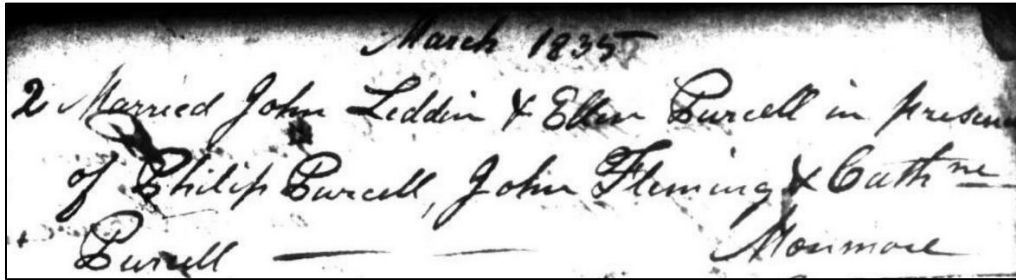 March 1835
2 Married John Leddin & Ellen Purcell in presence
of Philip Purcell, John Fleming & Cathne
Purcell — — Monmore